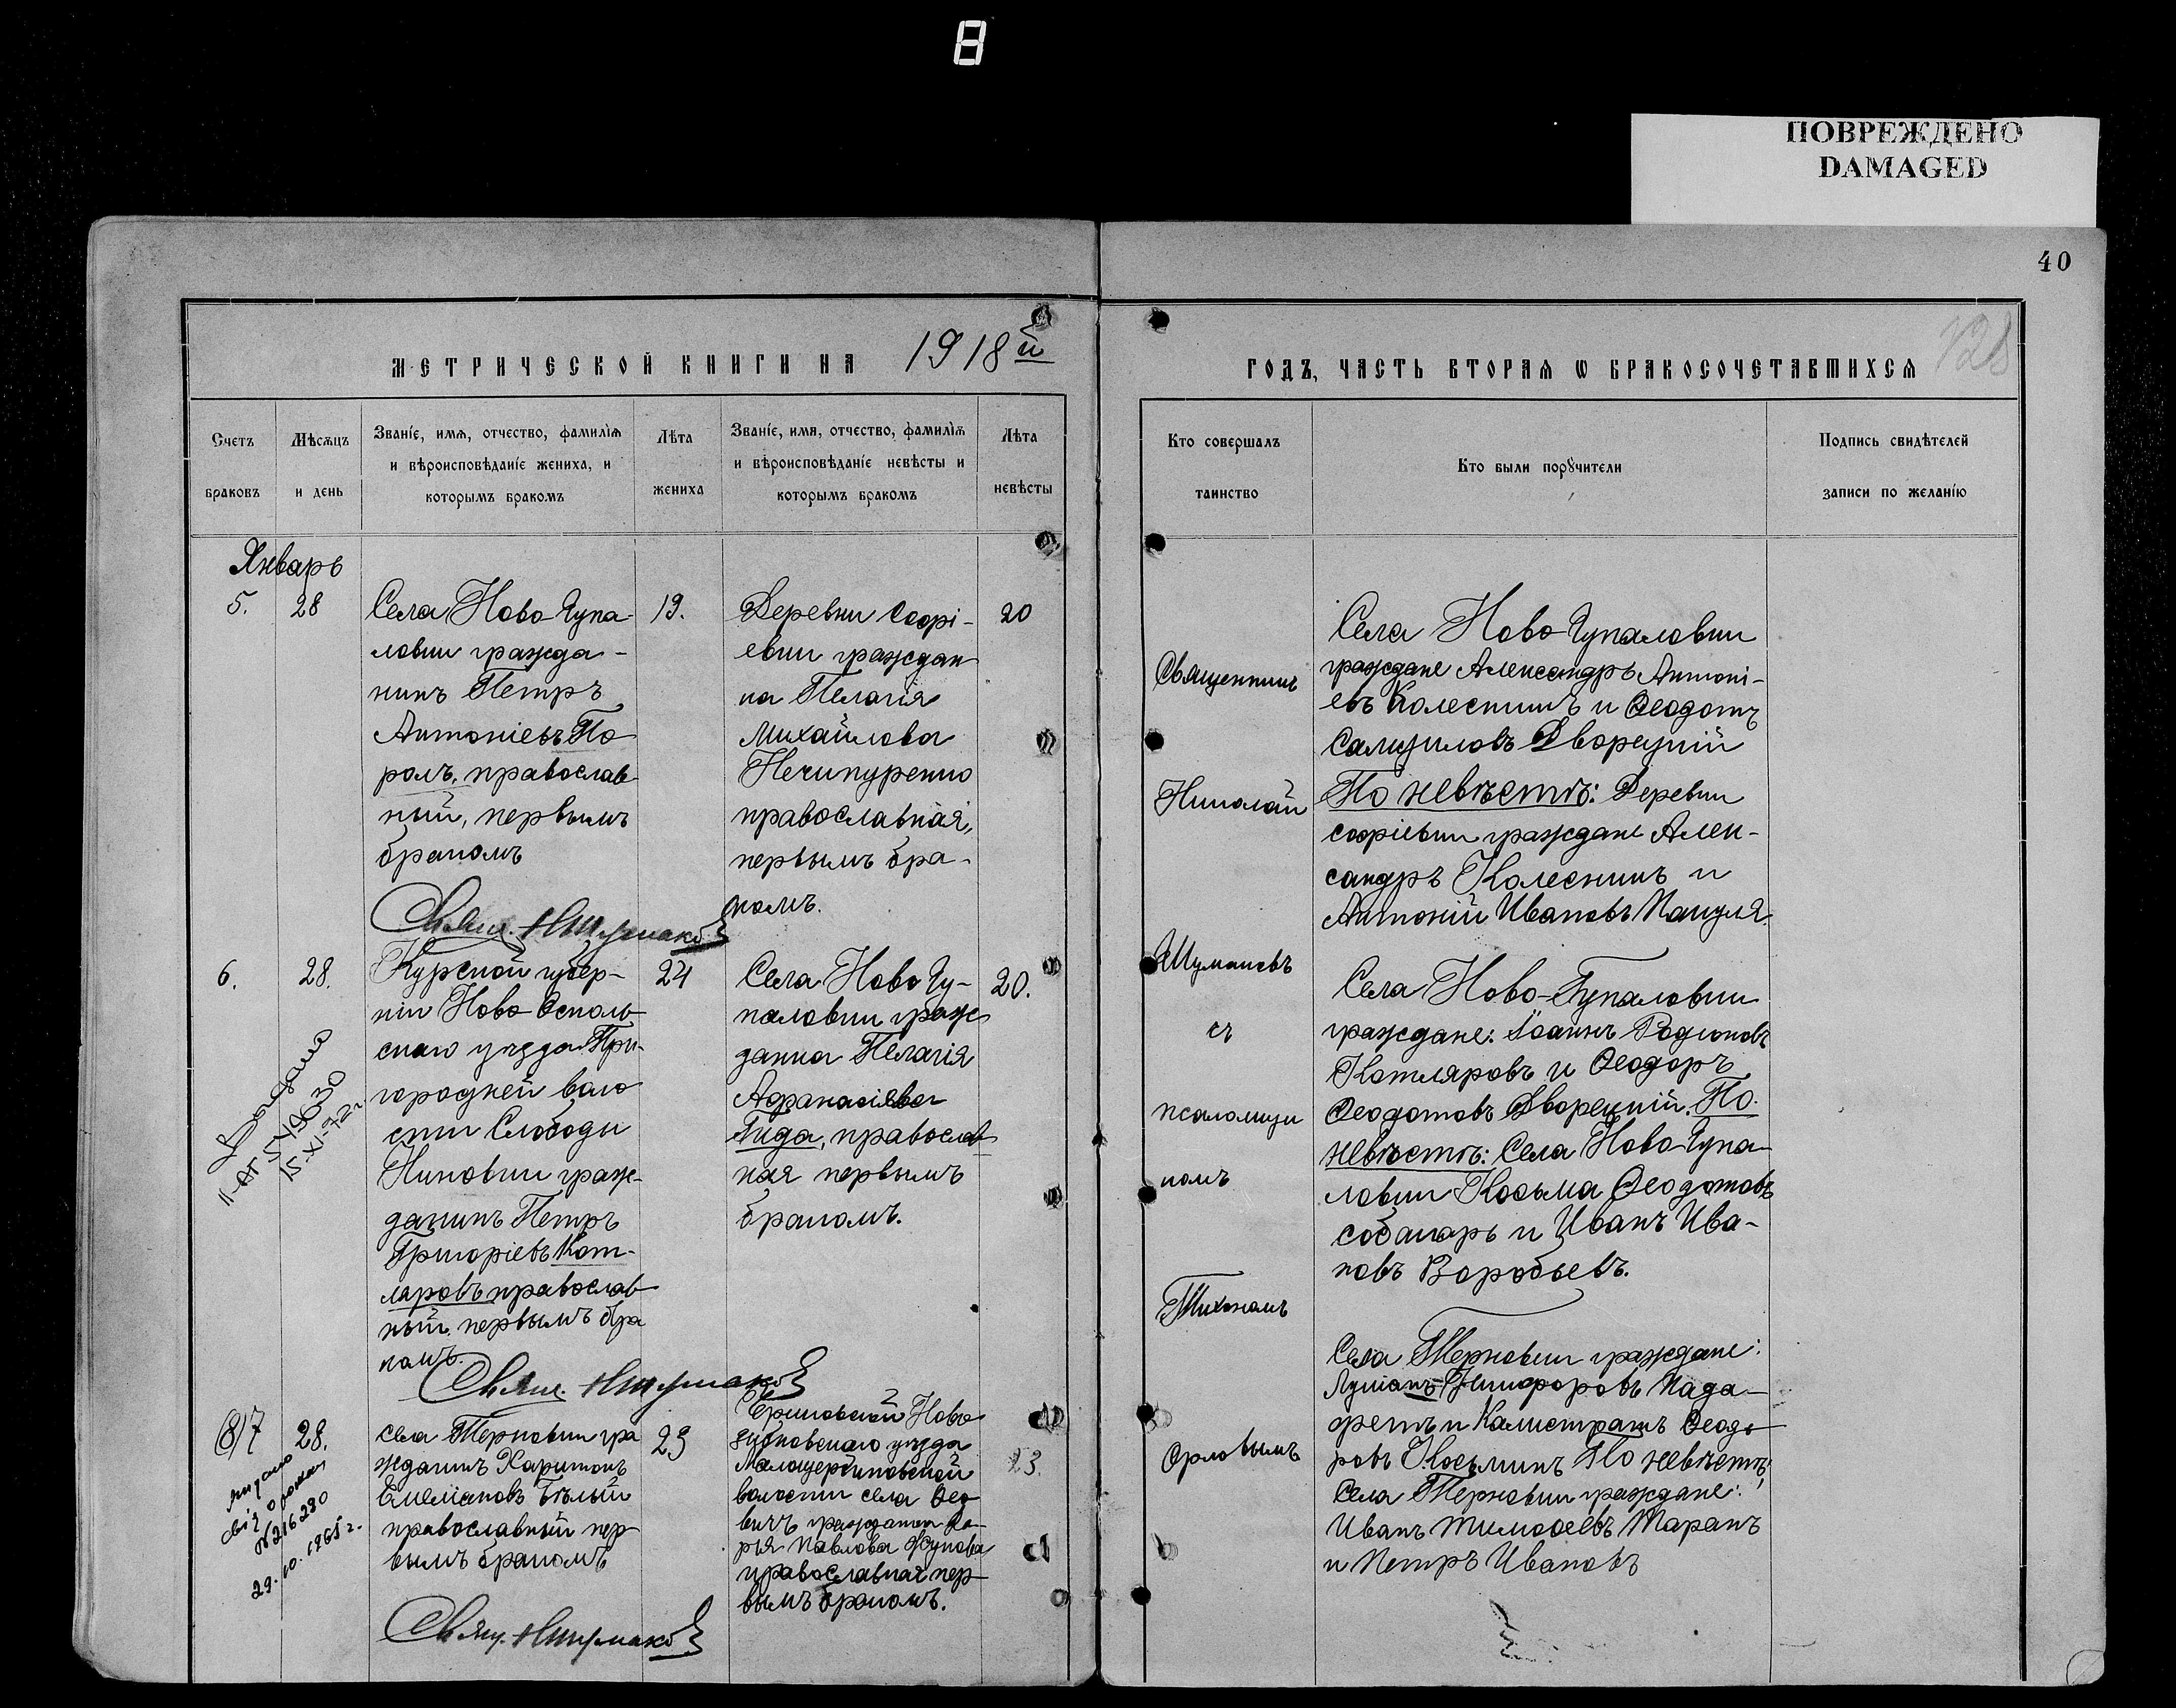 8
ПОВРЕЖДЕНО
DAMAGED
40
128
МЕТРИЧЕСКОЙ КНИГИ НА 1918й
ГОДЪ, ЧАСТЬ ВТОРАѦ Ѡ БРАКОСОЧЕТАВШИХСѦ
Счетъ
браковъ
Мѣсѧцъ
и день
Званіе, имѧ, отчество, фамилїѧ
и вѣроисповѣданіе жениха, и
которымъ бракомъ
Лѣта
жениха
Званіе, имя, отчество, фамилїѧ
и вѣроисповѣданіе невѣсты и
которымъ бракомъ
Лѣта
невѣсты
Кто совершалъ
таинство
Кто были порꙋчители
Подпись свидѣтелей
записи по желанію
Январь
5.
28
Села Ново Гупа-
ловки гражда-
нинъ Петръ
Антоніевъ Ко
роль, православ-
ный, первымъ
бракомъ
19.
Деревни Софі-
евки граждан
ка Пелагія
Михайлова
Нечипуренко
православная,
первымъ бра-
комъ.
20
Свящ. НШумаковъ
Села Ново-Гупаловки
граждане Александръ Антоні-
евъ Колесникъ и Ѳеодотъ
Самуиловъ Дворецкій
По невѣстѣ: Деревни
Софіевки граждане Алек-
сандръ Колесникъ и
Антоній Ивановъ
6.
28.
Выдано
15.XI-72г
Курской губер-
ніи Ново Осколь-
скаго уѣзда При-
городней воло
сти Слободы
граж-
данинъ Петръ
Григоріевъ Кот-
ляровъ православ
ный, первымъ бра
комъ.
24
Села Ново Гу-
паловки граж
данка Пелагія
Аѳанасіева
Гида, православ
ная первымъ
бракомъ.
20.
Свящ. НШумаковъ
Села Ново-Гупаловки
граждане: Іоаннъ Родіоновъ
Котляровъ и Ѳеодоръ
Ѳеодотовъ Дворецкій. По
невѣстѣ: Села Ново-Гупа-
ловки Косьма Ѳеодотовъ
собакарь и Иванъ Ива-
новъ Воробьевъ.
(8)7
28.
видано
N216280
29.10.1965г.
села Терновки гра
жданинъ Харитонъ
Емеліановъ Бѣлый
православный пер
вымъ бракомъ
23
Ново
зыбковскаго уѣзда
Малощербиновской
волости села
гражданка Да-
рья Павлова
православная пер-
вымъ бракомъ.
23.
Свящ. НШумаковъ
Села Терновки граждане:
Лукіанъ Никифоровъ
и Калистратъ Ѳеодо
ровъ Косьминъ По невѣстѣ:
Села Терновки граждане:
Иванъ Тимоѳеевъ Таранъ
и Петръ Ивановъ
Священникъ
Николай
Шумаковъ
съ
псаломщи
комъ
Тихономъ
Орловымъ